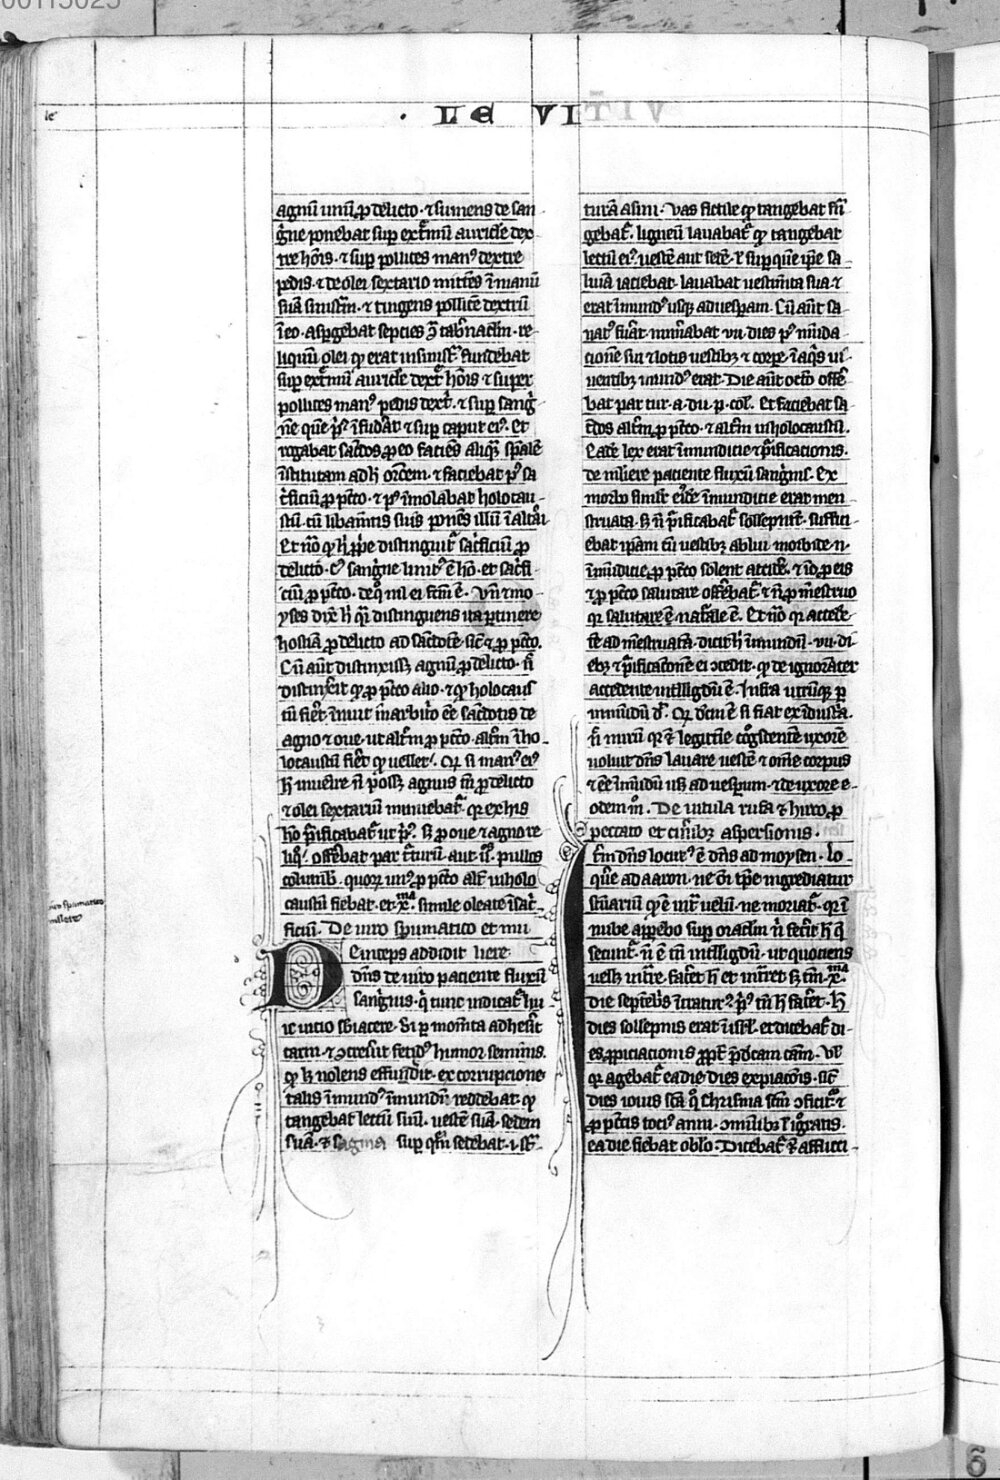 00115025
le
· LE VI
agnū unū ꝓ delicto · ⁊ sumens de san-
gͥne ponebat suꝑ extͥmū auricle dex-
tre hoīs · ⁊ suꝑ pollices manꝰ dextre
pedis · ⁊ de olei sextario mittēs ī manū
suā sinistͣm · ⁊ tingens pollicē dextrū
ī eo · aspͥgebat septies ↄ̃ tabͬnaclm · re-
liquū olei qͥ erat in sinistͣ fundebat
suꝑ extͥmū auricle dextͬ hoīs ⁊ super
pollices manꝰ pedis dextͥ · ⁊ suꝑ sangͥ-
nē que pͥꝰ īfudāt ⁊ suꝑ caput eiꝰ · Et
rogabat sacͬdos ꝓ eo faciēs aliqͣꝫ spālē
īstitutam ad h̄ orōem · ⁊ faciebat pꝰ sa
cͥficiū ꝓ pctō · ⁊ pꝰ īmolabat holocau-
stū cū libamītis suis ponēs illū ī altāri
Et nō qͥ h̄ ꝓprie distinguitͬ sacͥficiū ꝓ
delicto · cꝰ sangͥne linitꝰ ē hō · et sacͥfi-
ciū ꝓ pctō · de qͦ nil ei fcm̄ ē · Vn̄ ⁊ mo-
yses dix̄ h̄ qͣ distinguens ita ꝑtinere
hostiā ꝓ delicto ad sacͬdotē sic̄ ⁊ ꝓ pctō ·
Cū aūt distinxissꝫ agnū ꝓ delicto · n̄
distinxit qͥ ꝓ pctō alio · ⁊ qͥ holocaus
tū fieret inuit ī arbitͥo eē sacͬdotis de
agno ⁊ oue · ut altͬm ꝓ pctō · altͬm ī ho-
locaustū fieret qͥ uellet · Qͬ si manꝰ eiꝰ
h̄ inuēire n̄ possꝫ agnus tn̄ ꝓ delicto
⁊ olei sextariū minuebatͬ · qͥ ex his
hō pͥficabatͬ ut pͥꝰ · Sꝫ ꝓ oue ⁊ agno re
liqͦ · offͬebat par tͬturū aut īꝰ pullos
columb · quoꝝ unꝰ ꝓ pctō altͬ ī holo
caustū fiebat · et x.ma simile oleate ī sacͥ
ficiū · De uiro spumatico et mu
liere
Deinceps addidit
dn̄s de uiro paciente fluxū
sangͥnis · qͥ tunc iudicatͬ hu
ic uicio sbiacere · Si ꝑ momēta adhesͥit
carni · ⁊ ↄcresͨit fetidꝰ humor seminis ·
qͥ h̄ nolens effundit · ex corrupcione
talis īmundꝰ īmundū reddebat · qͥ
tangebat lectū suū · uestē suā · sedem
suā · ⁊ sagma suꝑ qͦm sedebat · i · st̄ͬ
uiro spumatico
muliere
turā asini · Vas fictile qͥ tangebat frā
gebatͬ · ligneū lauabatͬ qͥ tangebat
lectū eiꝰ uestē aut sedē · ⁊ suꝑ que ipe sa-
liuā iaciebat · lauabat uestimēta sua ⁊
erat īmundꝰ usqꝫ ad uesꝑam · Cū aūt sa-
natꝰ fuāt numͬabat vii · dies pꝰ mūda-
cionē sui ⁊ lotis uestibꝫ ⁊ corpe · ī aqͥs ui-
uentibꝫ mundꝰ erat · Die aūt octō offͬe
bat par tur · a · du · p · col · Et faciebat sa
cͬdos altͬm ꝓ pctō · ⁊ altͬm ī holocaustū ·
Eadē lex erat īmundicie ⁊ pͥficacionis ·
de muliere paciente fluxū sangͥnis · Ex
morbo similis eͥdē īmundicie erat men-
struata · sꝫ n̄ pͥficabatͬ sollepnitͬ · suffici-
ebat ipam cū uestibꝫ ablui · morbide n̄ ·
īmūdicie ꝓ pctō solent accidͬe · ⁊ id ꝓ eis
⁊ ꝓ pctō salutare offͬebatͬ · ⁊ n̄ ꝓ mēstruo
qͬ salutare ē · natͣle ē · Et nō qͬ accede-
tē ad mēstruatā · dicit h̄ īmundū · vii · di-
ebꝫ ⁊ pͥficacionē ei ↄcedit · qͥ de ignoranter
accedente intelligdū ē · Infra utrūqꝫ ꝑ
immūdū dͬ · Qͬ dcm̄ ē si fiat ex īdustͥa ·
n̄ mirū qͬ ⁊ legittīe cognoscentē uxorē
uoluit dn̄s lauare uestē ⁊ om̄e corpus
⁊ eē īmūdū usqꝫ ad uesꝑum · ⁊ de uxore e-
odem m̄ · De uitula rufa ⁊ hirco ꝓ
peccato et cinͬibꝫ aspersionis ·
Itͬm dn̄s locutꝰ ē dn̄s ad moysen · lo-
quͬe ad aaron · ne oī tpͬe ingrediatur
sctūariū qͥ ē intͬ uelū · ne moriatͬ · qͬ ī
nube appͬebo suꝑ oraclm n̄ fecͬit h̄ qͦ
fecunt · n̄ ē tn̄ intelligdū · ut quotiens
uellꝫ intͬre · facͬet h̄ et intͬret sꝫ tm̄ · x.ma
die septēbͬis ītratuꝰ pͥꝰ tn̄ h̄ facͬet · H̄
dies sollepnis erat ī isrl̄ · et dicebatͬ di-
es ꝓpiciacionis ꝓptͬ pͬdcam cām · Vel
qͬ agebatͬ ea die dies expiacōis · sic̄
dies iouis scā qͦ chrisma scm̄ ↄficitͬ ⁊
ꝓ pctīs tociꝰ anni · omibꝫ ⁊ igͦrans ·
ea die fiebat oblō · Dicebatͬ ⁊ afflicci-